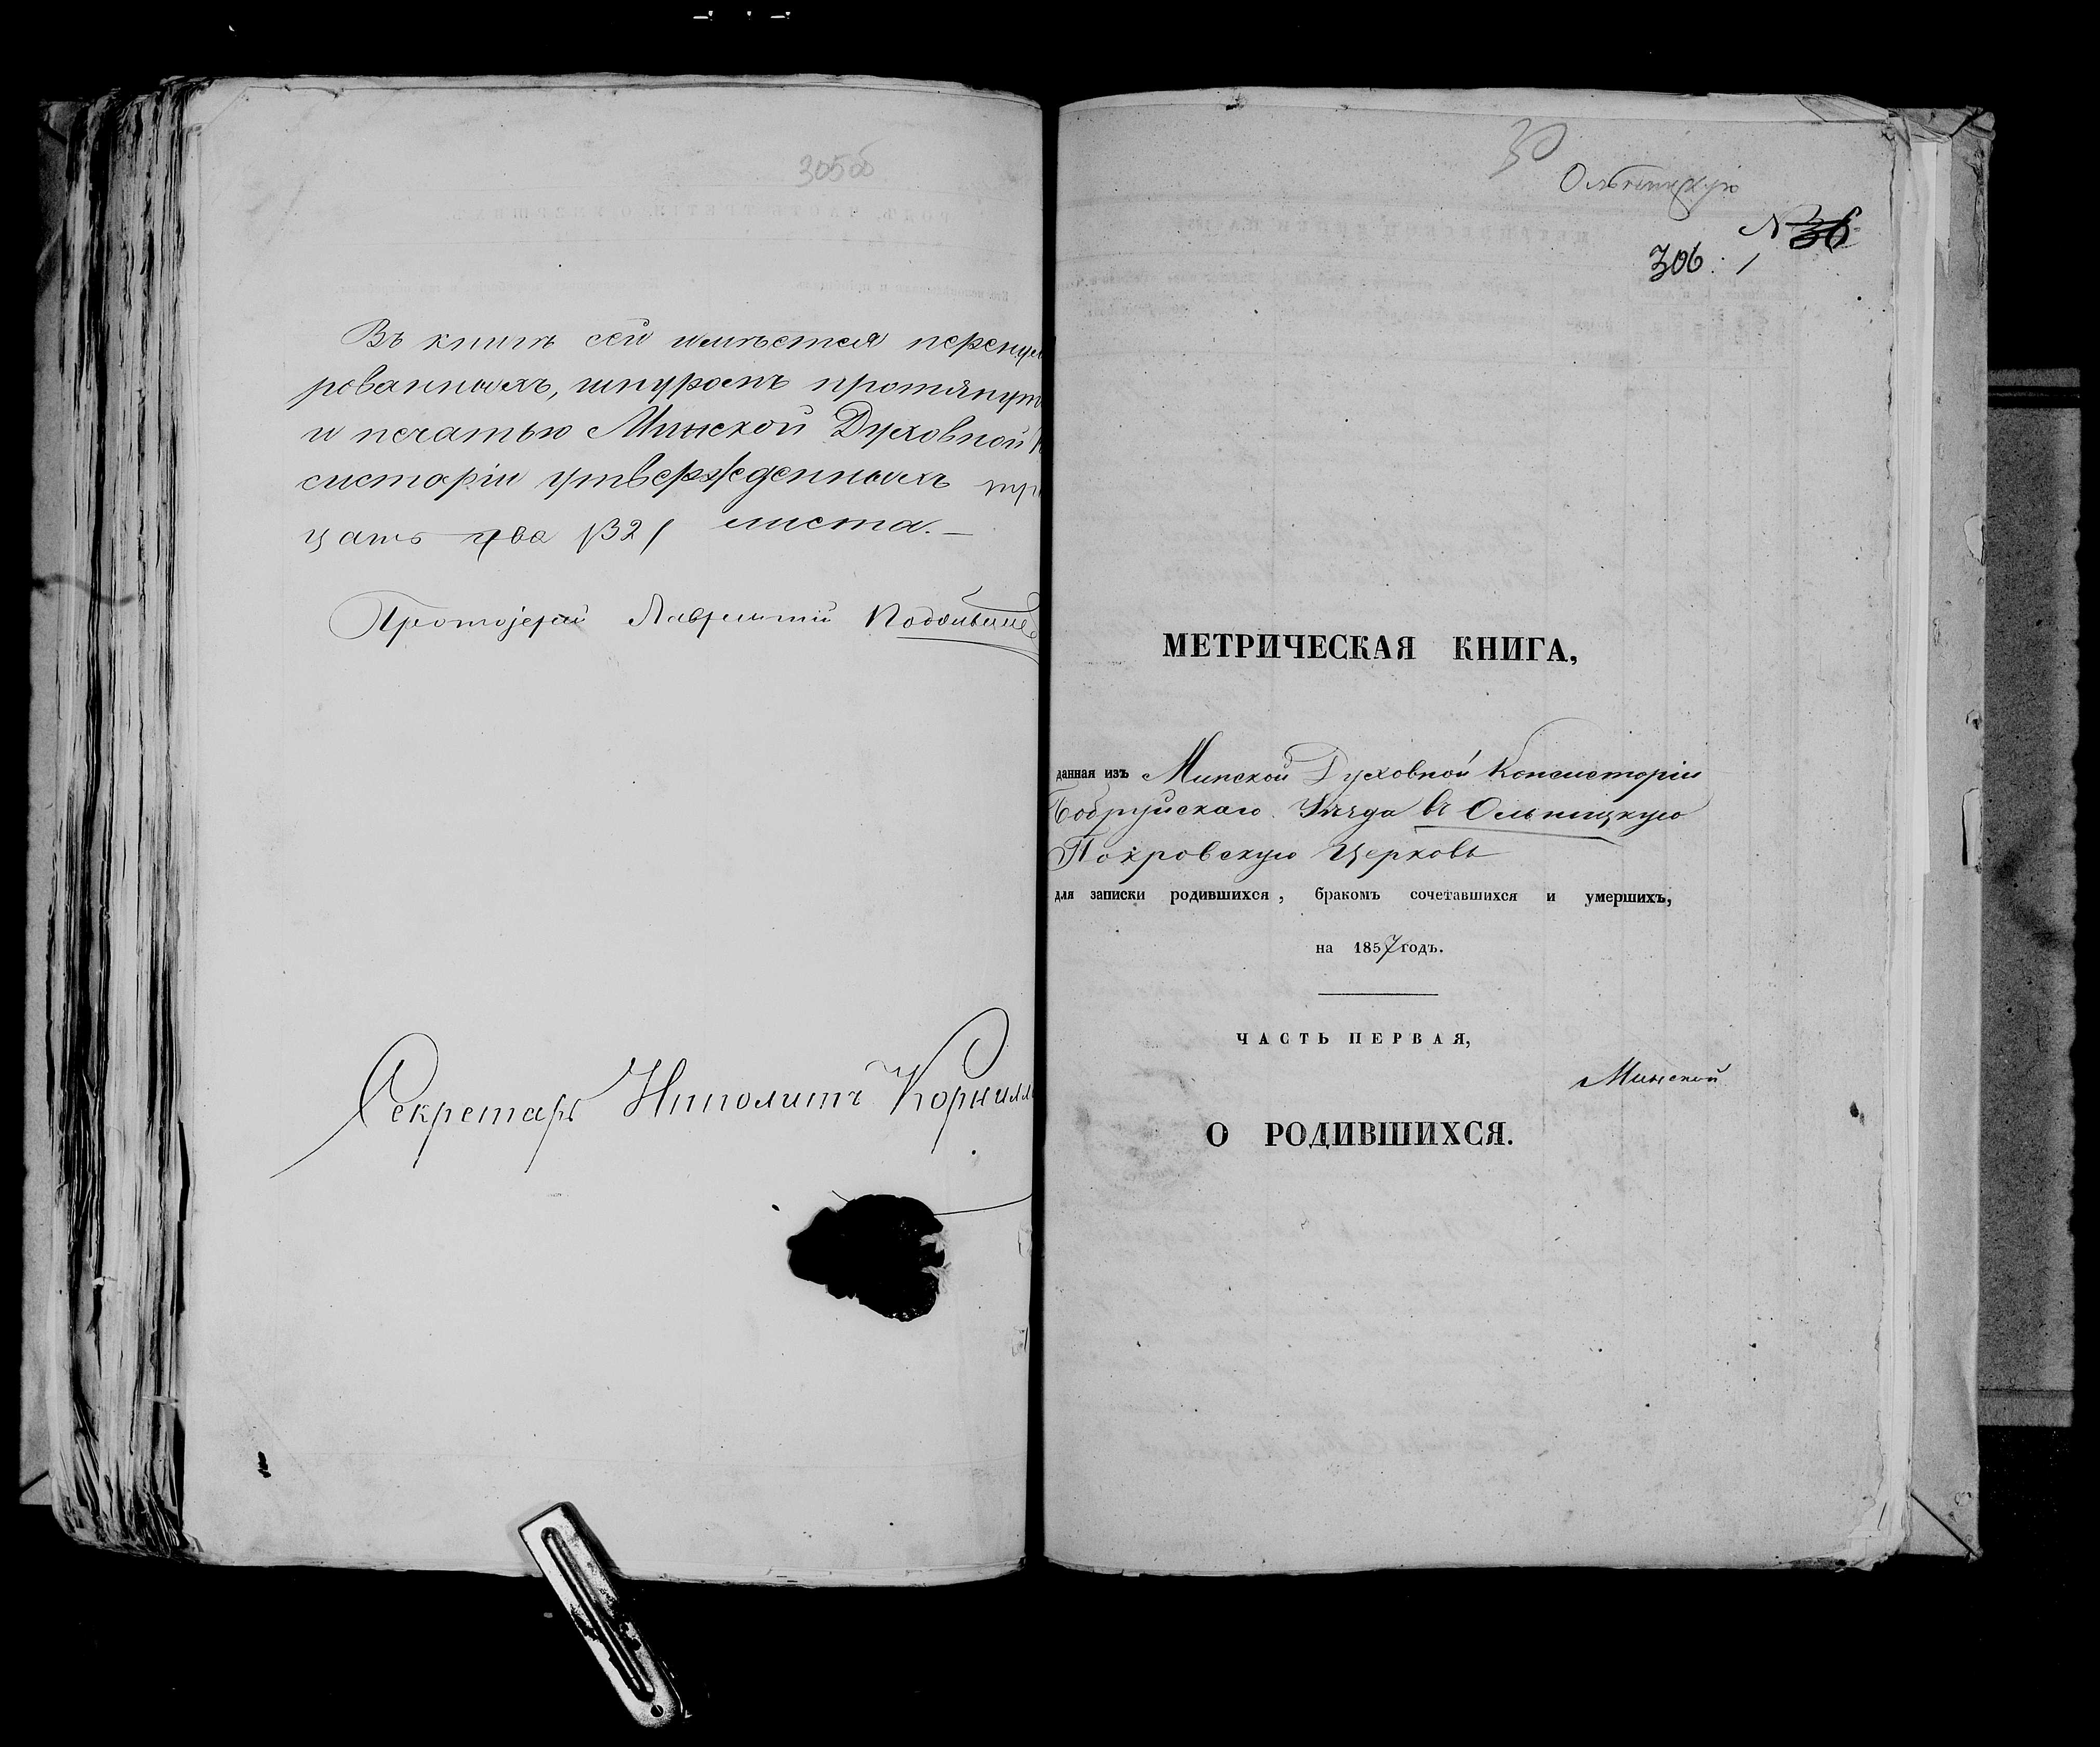 305об
Въ книгѣ сей имѣется перенуме
рованныхъ, шнуромъ протянут
и печатью Минской Духовной К
систоріи утвержденныхъ тр
цать два /32/ листа.—
Протоіерей Лаврентій
Секретарь Ипполитъ Корнил
306.
МЕТРИЧЕСКАЯ КНИГА,
данная изъ Минской Духовной Консисторіи
Бобруйскаго Уѣзда въ Ольницкую
Покровскую Церковь
для записки родившихся, бракомъ сочетавшихся и умершихъ,
на 1857 годъ.
ЧАСТЬ ПЕРВАЯ,
Минской
О РОДИВШИХСЯ.